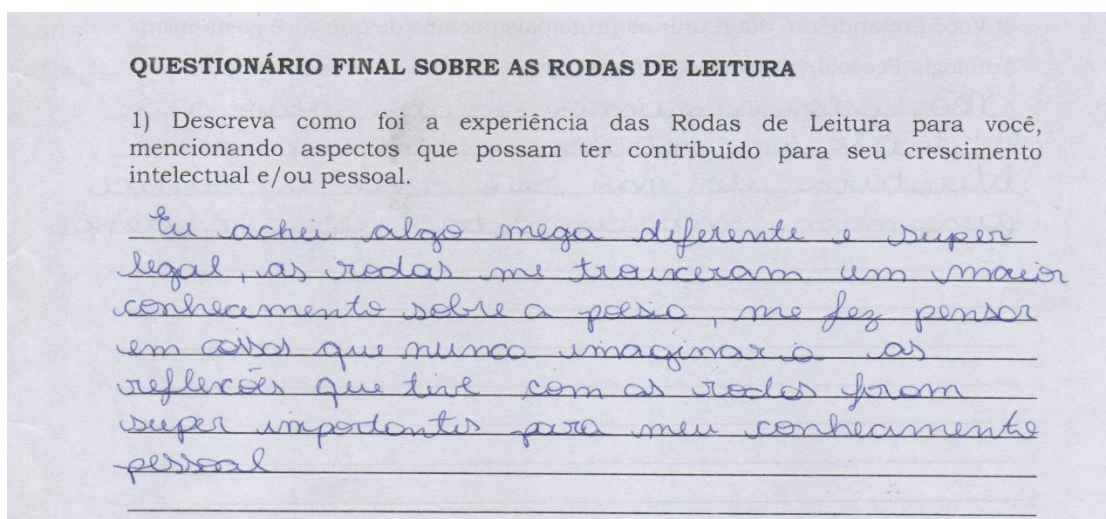 QUESTIONÁRIO FINAL SOBRE AS RODAS DE LEITURA
1) Descreva como foi a experiência das Rodas de Leitura para você,
mencionando aspectos que possam ter contribuído para seu crescimento
intelectual e/ou pessoal.
Eu achei algo mega diferente e super
legal, as rodas me trouxeram um maior
conhecimento sobre a poesia, me fez pensar
em coisas que nunca imaginaria as
reflexões que tive com as rodas foram
super importantes para meu conhecimento
pessoal